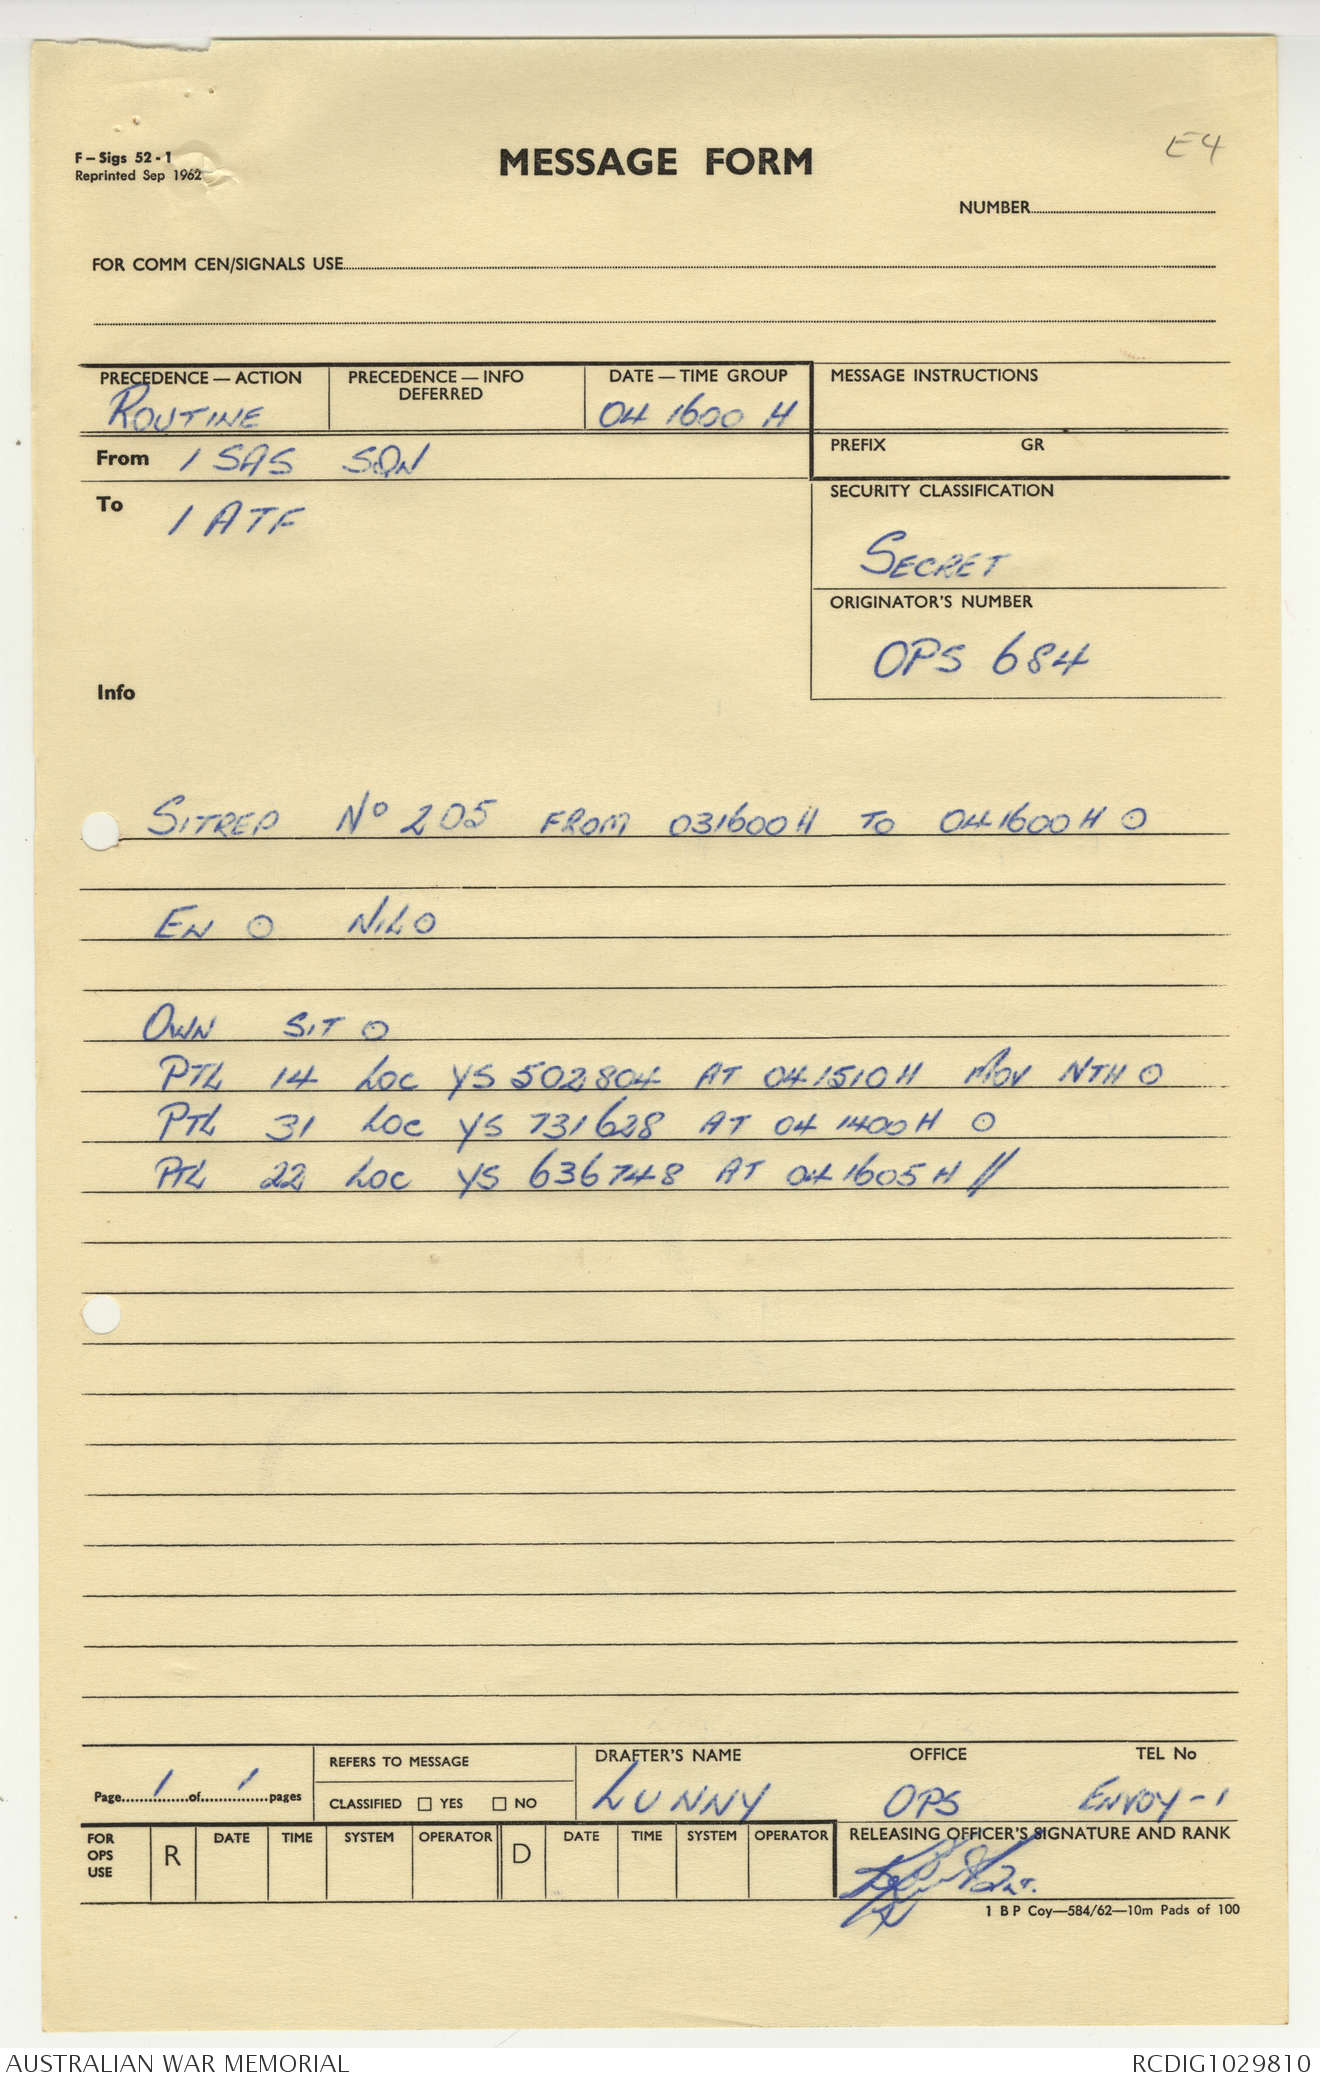 F – Sigs 52 - 1
Reprinted Sep 1962
MESSAGE FORM
E4
NUMBER
FOR COMM CEN/SIGNALS USE
PRECEDENCE — ACTION
ROUTINE
PRECEDENCE — INFO
DEFERRED
DATE — TIME GROUP
041600 H
MESSAGE INSTRUCTIONS
PREFIX GR
From 1 SAS SQN
To 1 ATF
SECURITY CLASSIFICATION
SECRET
ORIGINATOR'S NUMBER
OPS 684
Info
SITREP No 205 FROM 031600H TO 041600H ⊙
EN ⊙ NIL ⊙
OWN SIT ⊙
PTL 14 LOC YS 502804 AT 041510H MOV NTH ⊙
PTL 31 LOC YS 731628 AT 041400H ⊙
PTL 22 LOC YS 636748 AT 041605H //
Page 1 of 1 pages
REFERS TO MESSAGE
CLASSIFIED ☐ YES ☐ NO
DRAFTER'S NAME
LUNNY
OFFICE
OPS
TEL No
ENVOY-1
FOR
OPS
USE
R DATE TIME SYSTEM OPERATOR D DATE TIME SYSTEM OPERATOR
RELEASING OFFICER'S SIGNATURE AND RANK
1 B P Coy—584/62—10m Pads of 100
AUSTRALIAN WAR MEMORIAL
RCDIG1029810